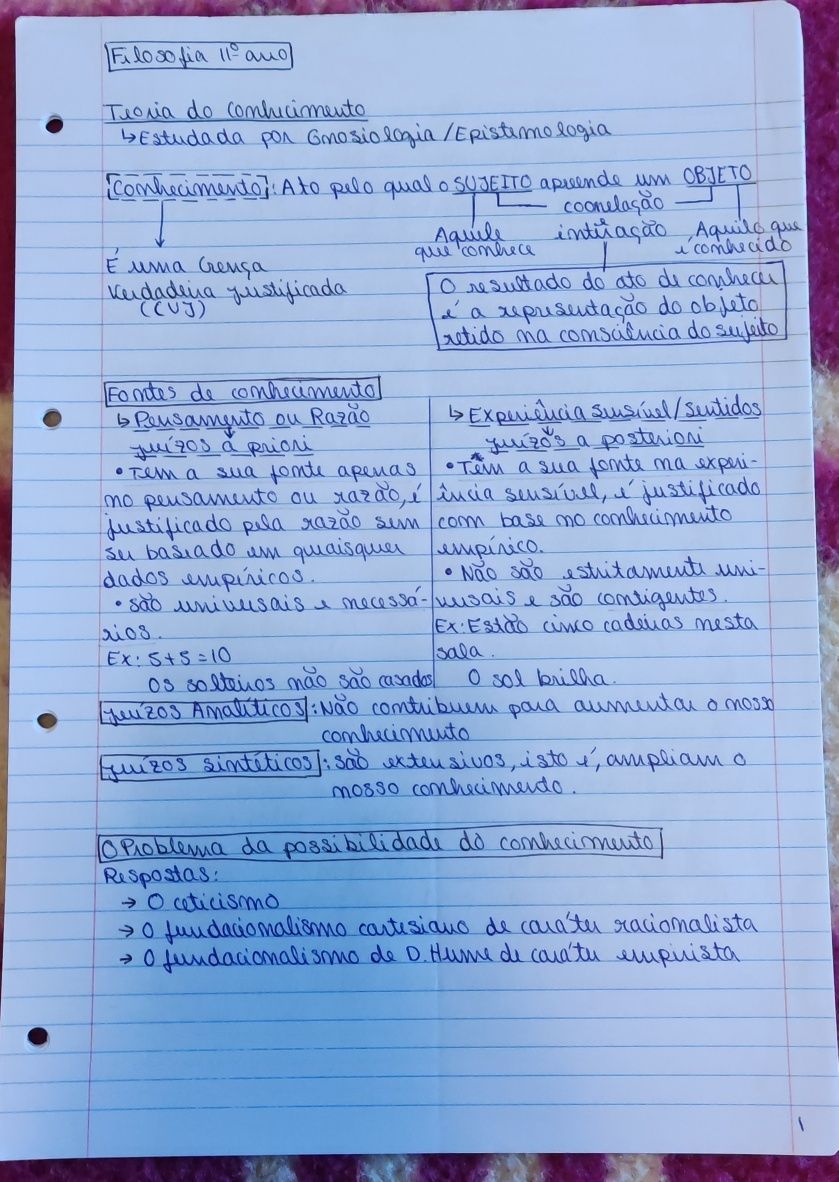 Filosofia 11º ano
Teoria do conhecimento
↳ Estudada por Gnosiologia/Epistemologia
Conhecimento: Ato pelo qual o SUJEITO apreende um OBJETO
coorelação
Aquele
que conhece
interação
Aquilo que
é conhecido
É uma Crença
Verdadeira justificada
(CVJ)
O resultado do ato de conhecer
é a representação do objeto
retido na consciência do sujeito
Fontes de conhecimento
↳ Pensamento ou Razão
juízos à priori
• Têm a sua fonte apenas
no pensamento ou razão, é
justificado pela razão sem
ser baseado em quaisquer
dados empíricos.
• São universais e necessá-
rios.
Ex: 5+5=10
Os solteiros não são casados
↳ Experiência sensível/Sentidos
juízos a posteriori
• Têm a sua fonte na experi-
ência sensível, é justificado
com base no conhecimento
empírico.
• Não são estritamente uni-
versais e são contigentes.
Ex: Estão cinco cadeiras nesta
sala.
O sol brilha.
juízos Analíticos: Não contribuem para aumentar o nosso
conhecimento
juízos sintéticos: são extensivos, isto é, ampliam o
nosso conhecimento.
O Problema da possibilidade do conhecimento
Respostas:
→ O ceticismo
→ O fundacionalismo cartesiano de caráter racionalista
→ O fundacionalismo de D. Hume de caráter empirista
1